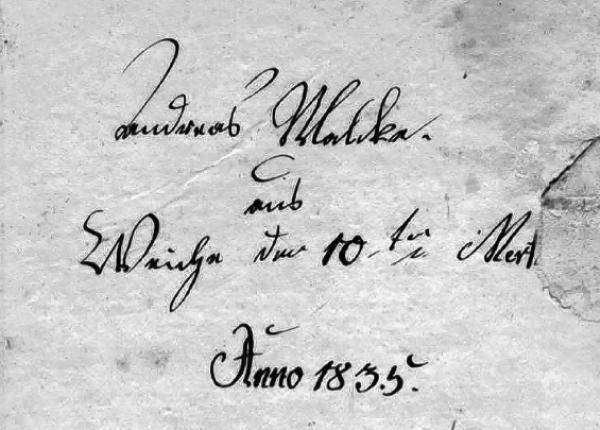 Andreas Maldke.
aus
Weiche den 10ten Mert
Anno 1835.